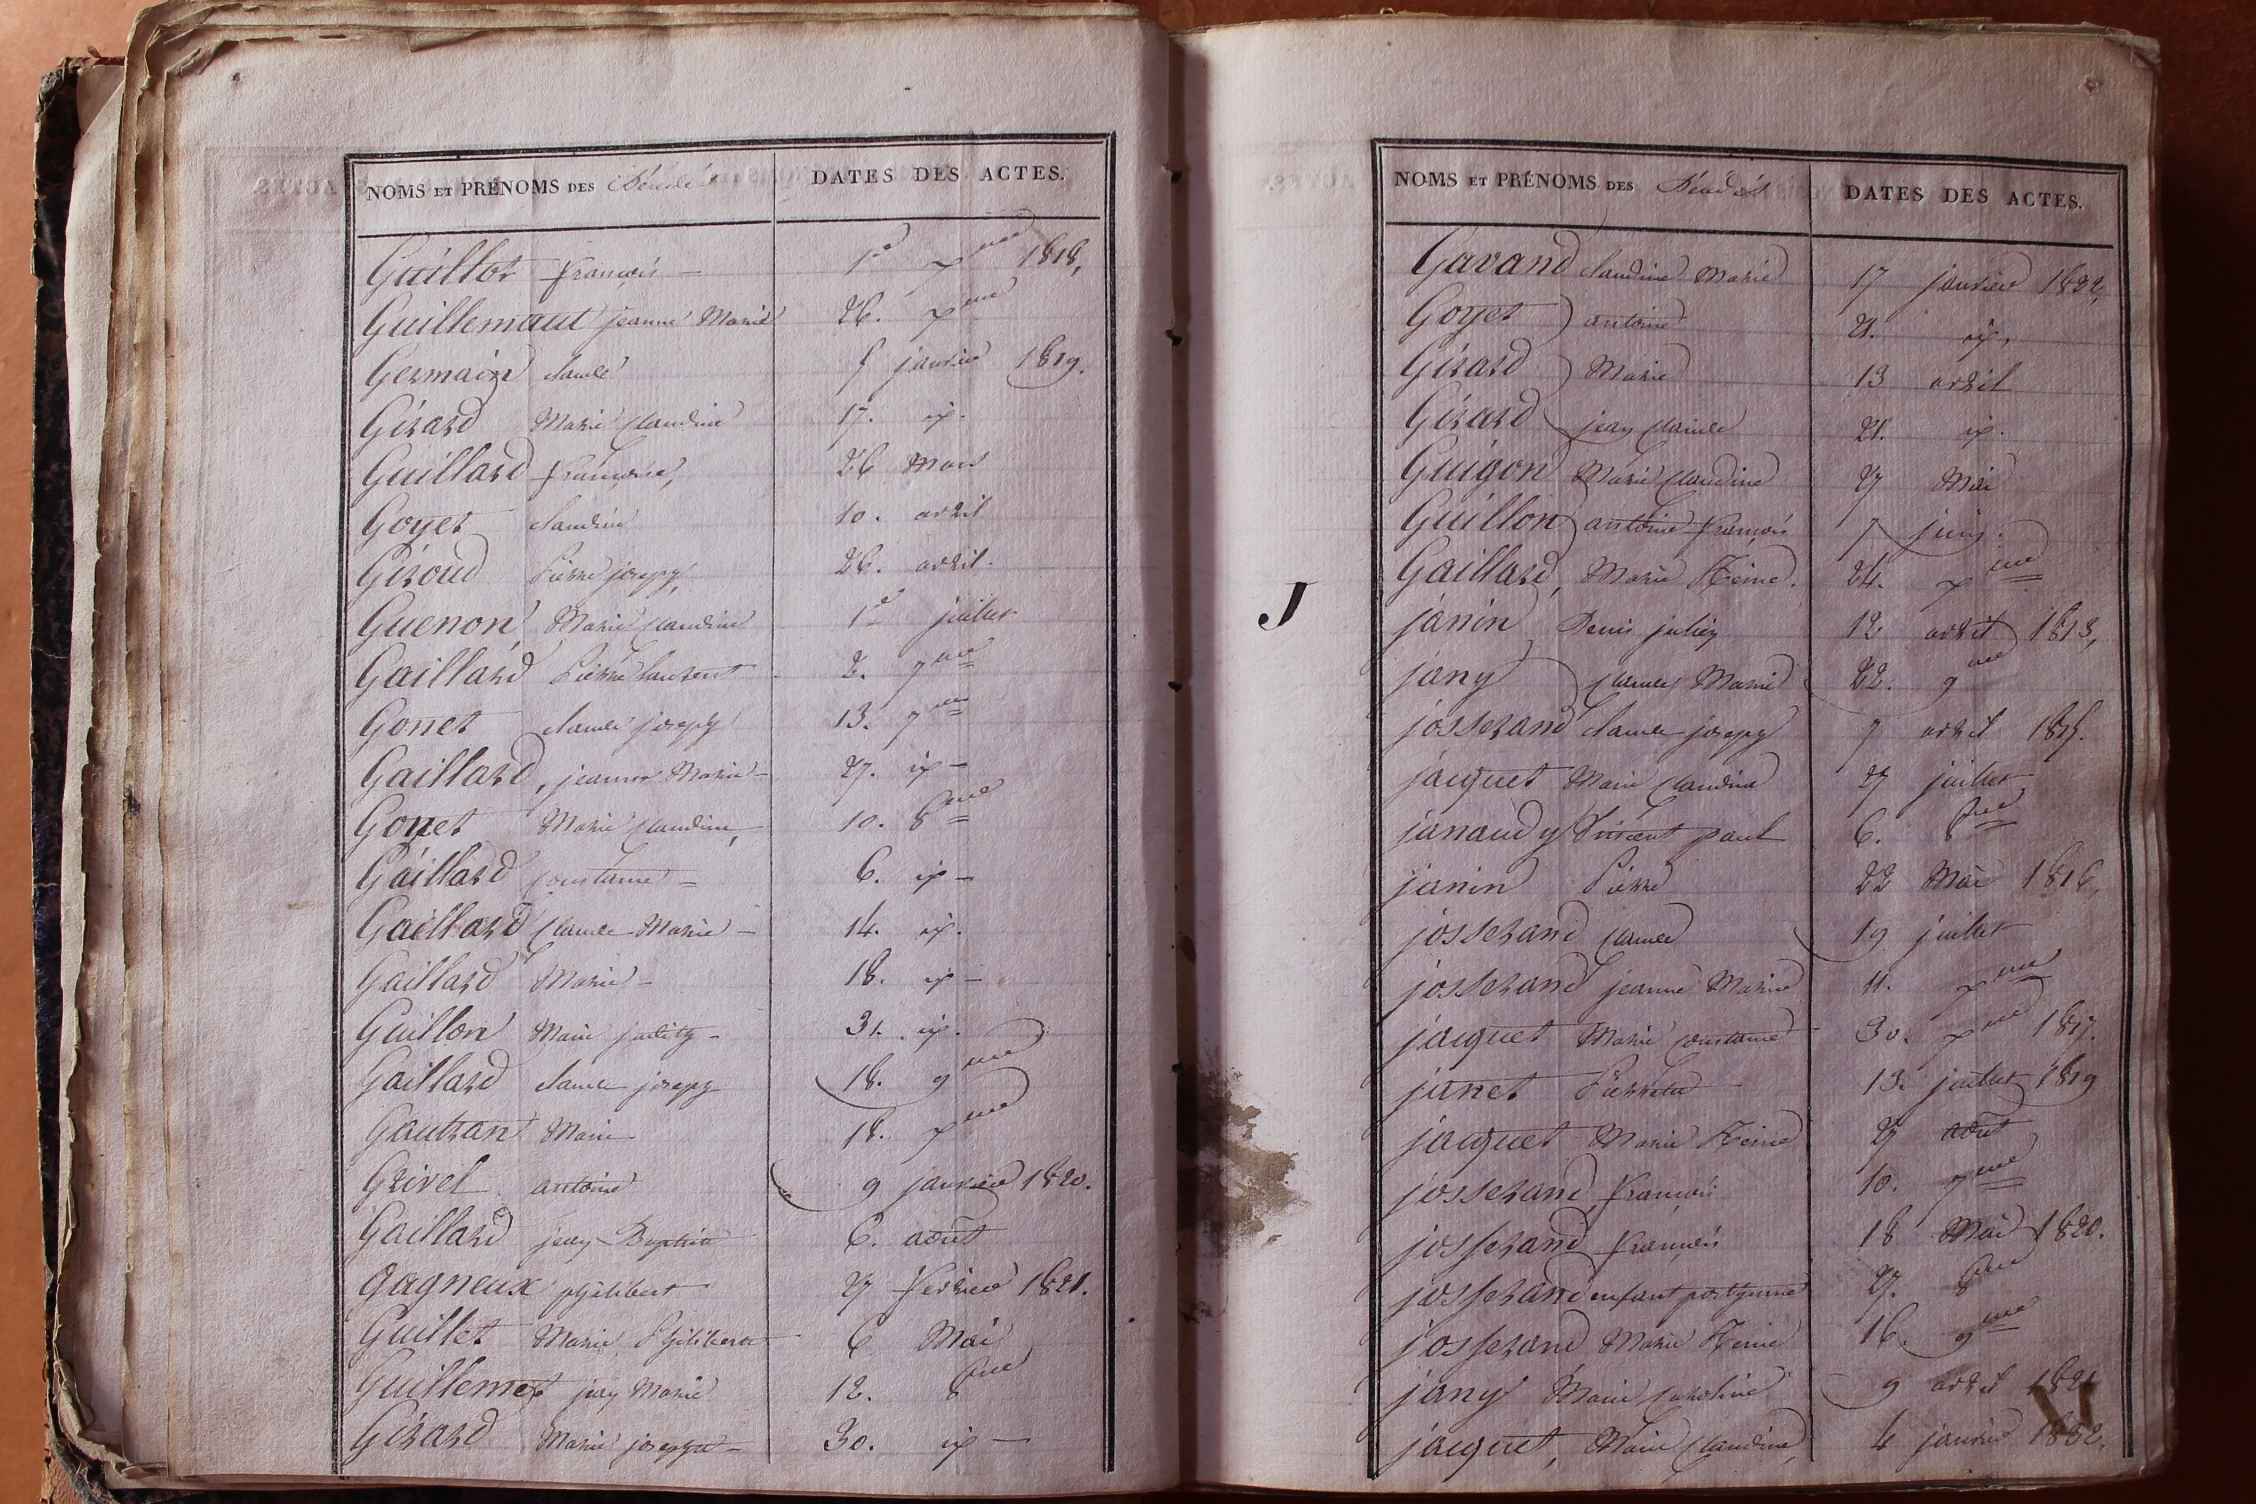 NOMS ET PRÉNOMS DES Décédés DATES DES ACTES.
Guillot françois 1er xbre 1818,
Guillemaut jeanne Marie 26. xbre
Germain claude 5 janvier 1819.
Gérard Marie claudine 17. id.
Guillard françoise, 26 Mars
Goyet claudine 10. avril
Géroud Pierre joseph, 26. avril.
Guenon Marie claudine 1er juillet
Gaillard Pierre laurent 2. 7bre
Gonet claude joseph 13. 7bre
Gaillard, jeanne Marie 27. id
Gonet Marie claudine, 10. 8bre
Gaillard constance 6. id
Gaillard claude Marie 14. id.
Gaillard Marie 18. id
Guillon Marie 31. id.
Gaillard claude joseph 18. 9bre
Gautran Marie 18. xbre
Grivel antoine 9 janvier 1820.
Gaillard jean Baptiste 6. août
Gagneux philibert 27 fevrier 1821.
Guillet Marie Philiberte 6 Mai
Guillemet jean Marie 12. 8bre
Gérard Marie josephte 30. id
NOMS ET PRÉNOMS DES Décédés DATES DES ACTES.
Gavand claudine Marie 17 janvier 1822,
Goyet antoine 21. id,
Gérard Marie 13 avril
Gérard jean claude 21. id.
Guigon Marie claudine 27 Mai
Guillon antoine françois 7 juin.
Gaillard, Marie Reine. 24. xbre
J
janin Denis julien 12 avril 1813,
jany claude Marie 22. 9bre
josserand claude joseph 7 avril 1815.
jacquet Marie claudine 27 juillet
janaudy Vincent paul 6. 8bre
janin Pierre 22 Mai 1816,
josserand claude 19 juillet
josserand jeanne Marie 11. xbre
jacquet Marie constance 30. xbre 1817.
janet Pierrette 13. juillet 1819
jacquet Marie Reine 27 août
josserand françois 10. 7bre
josserand françois 18 Mai 1820.
josserand enfant posthume 27. 8bre
josserand Marie Reine 16. 9bre
jany Marie caroline 9 avril 1821
jacquet, Marie claudine, 4 janvier 1822.